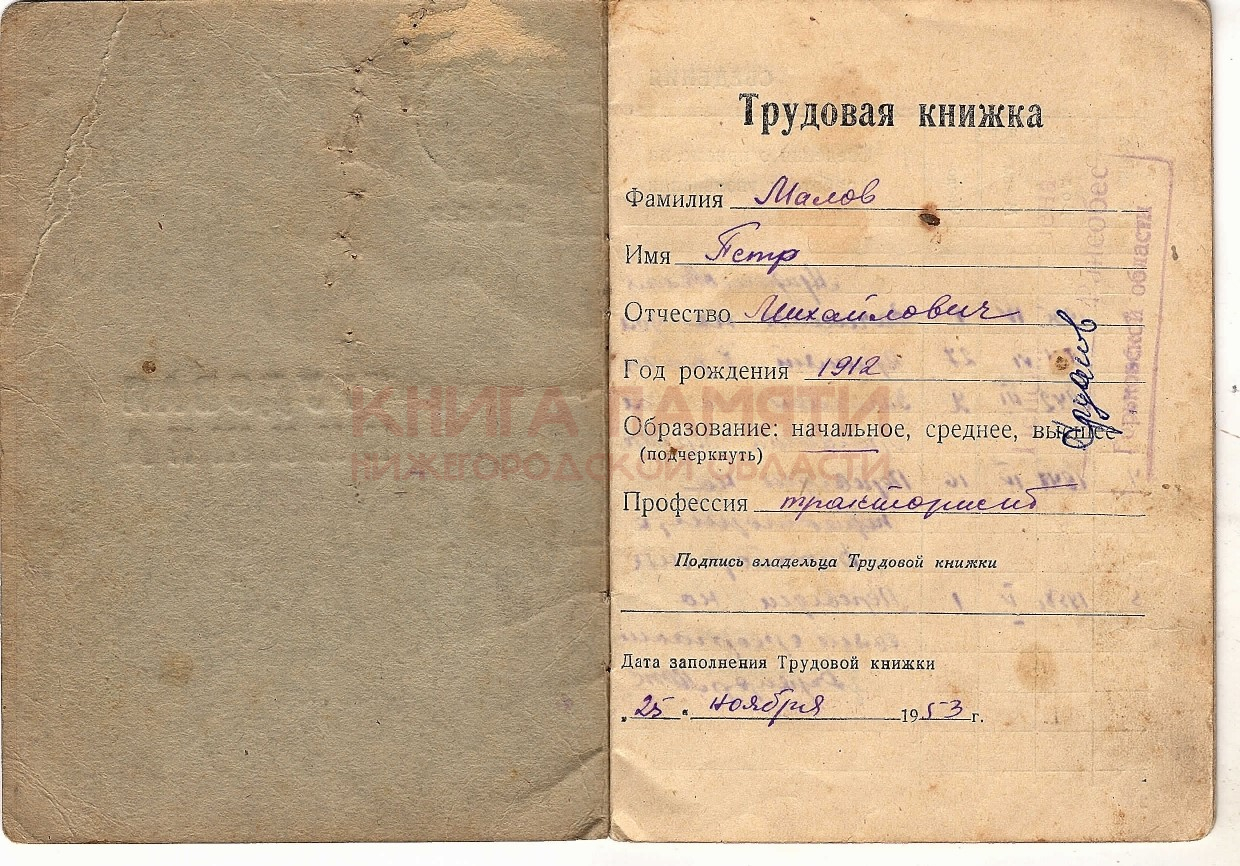 Трудовая книжка
Фамилия Малов
Имя Петр
Отчество Михайлович
Год рождения 1912
Образование: начальное, среднее, высшее
(подчеркнуть)
Профессия тракторист
Подпись владельца Трудовой книжки
Дата заполнения Трудовой книжки
„25“ ноября 1953 г.
Горьковской области
КНИГА ПАМЯТИ
НИЖЕГОРОДСКОЙ ОБЛАСТИ